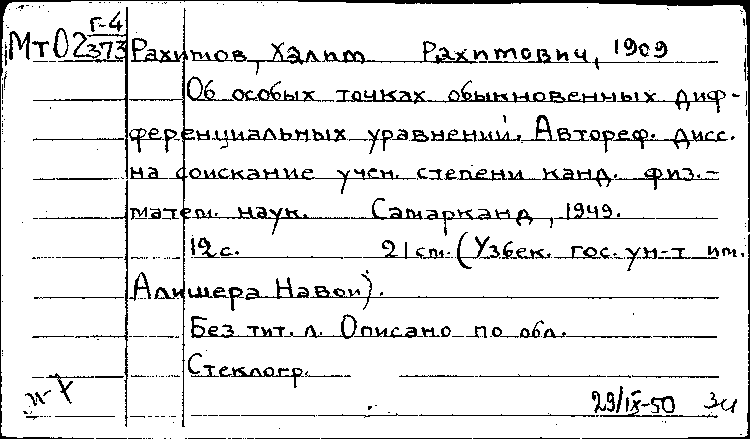 Г-4
Мт02 373 Рахимов, Халим Рахимович, 1909
Об особых точках обыкновенных диф-
ференциальных уравнений. Автореф. дисс.
на соискание учен. степени канд. физ.-
матем. наук. Самарканд, 1949.
12 с. 21 см. (Узбек. гос. ун-т им.
Алишера Навои).
Без тит. л. Описано по обл.
Стеклогр.
29/IX-50